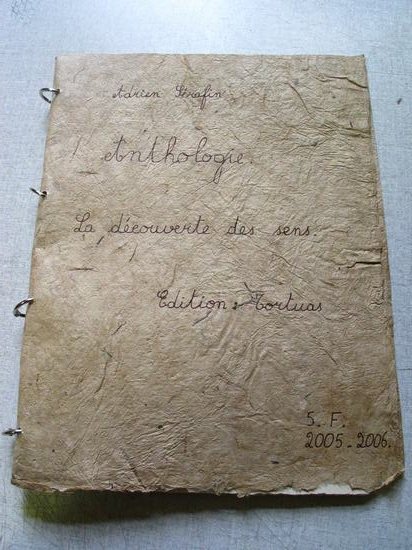 Adrien Sérafin
Anthologie.
La découverte des sens.
Edition: Tortuas
5. F.
2005-2006.